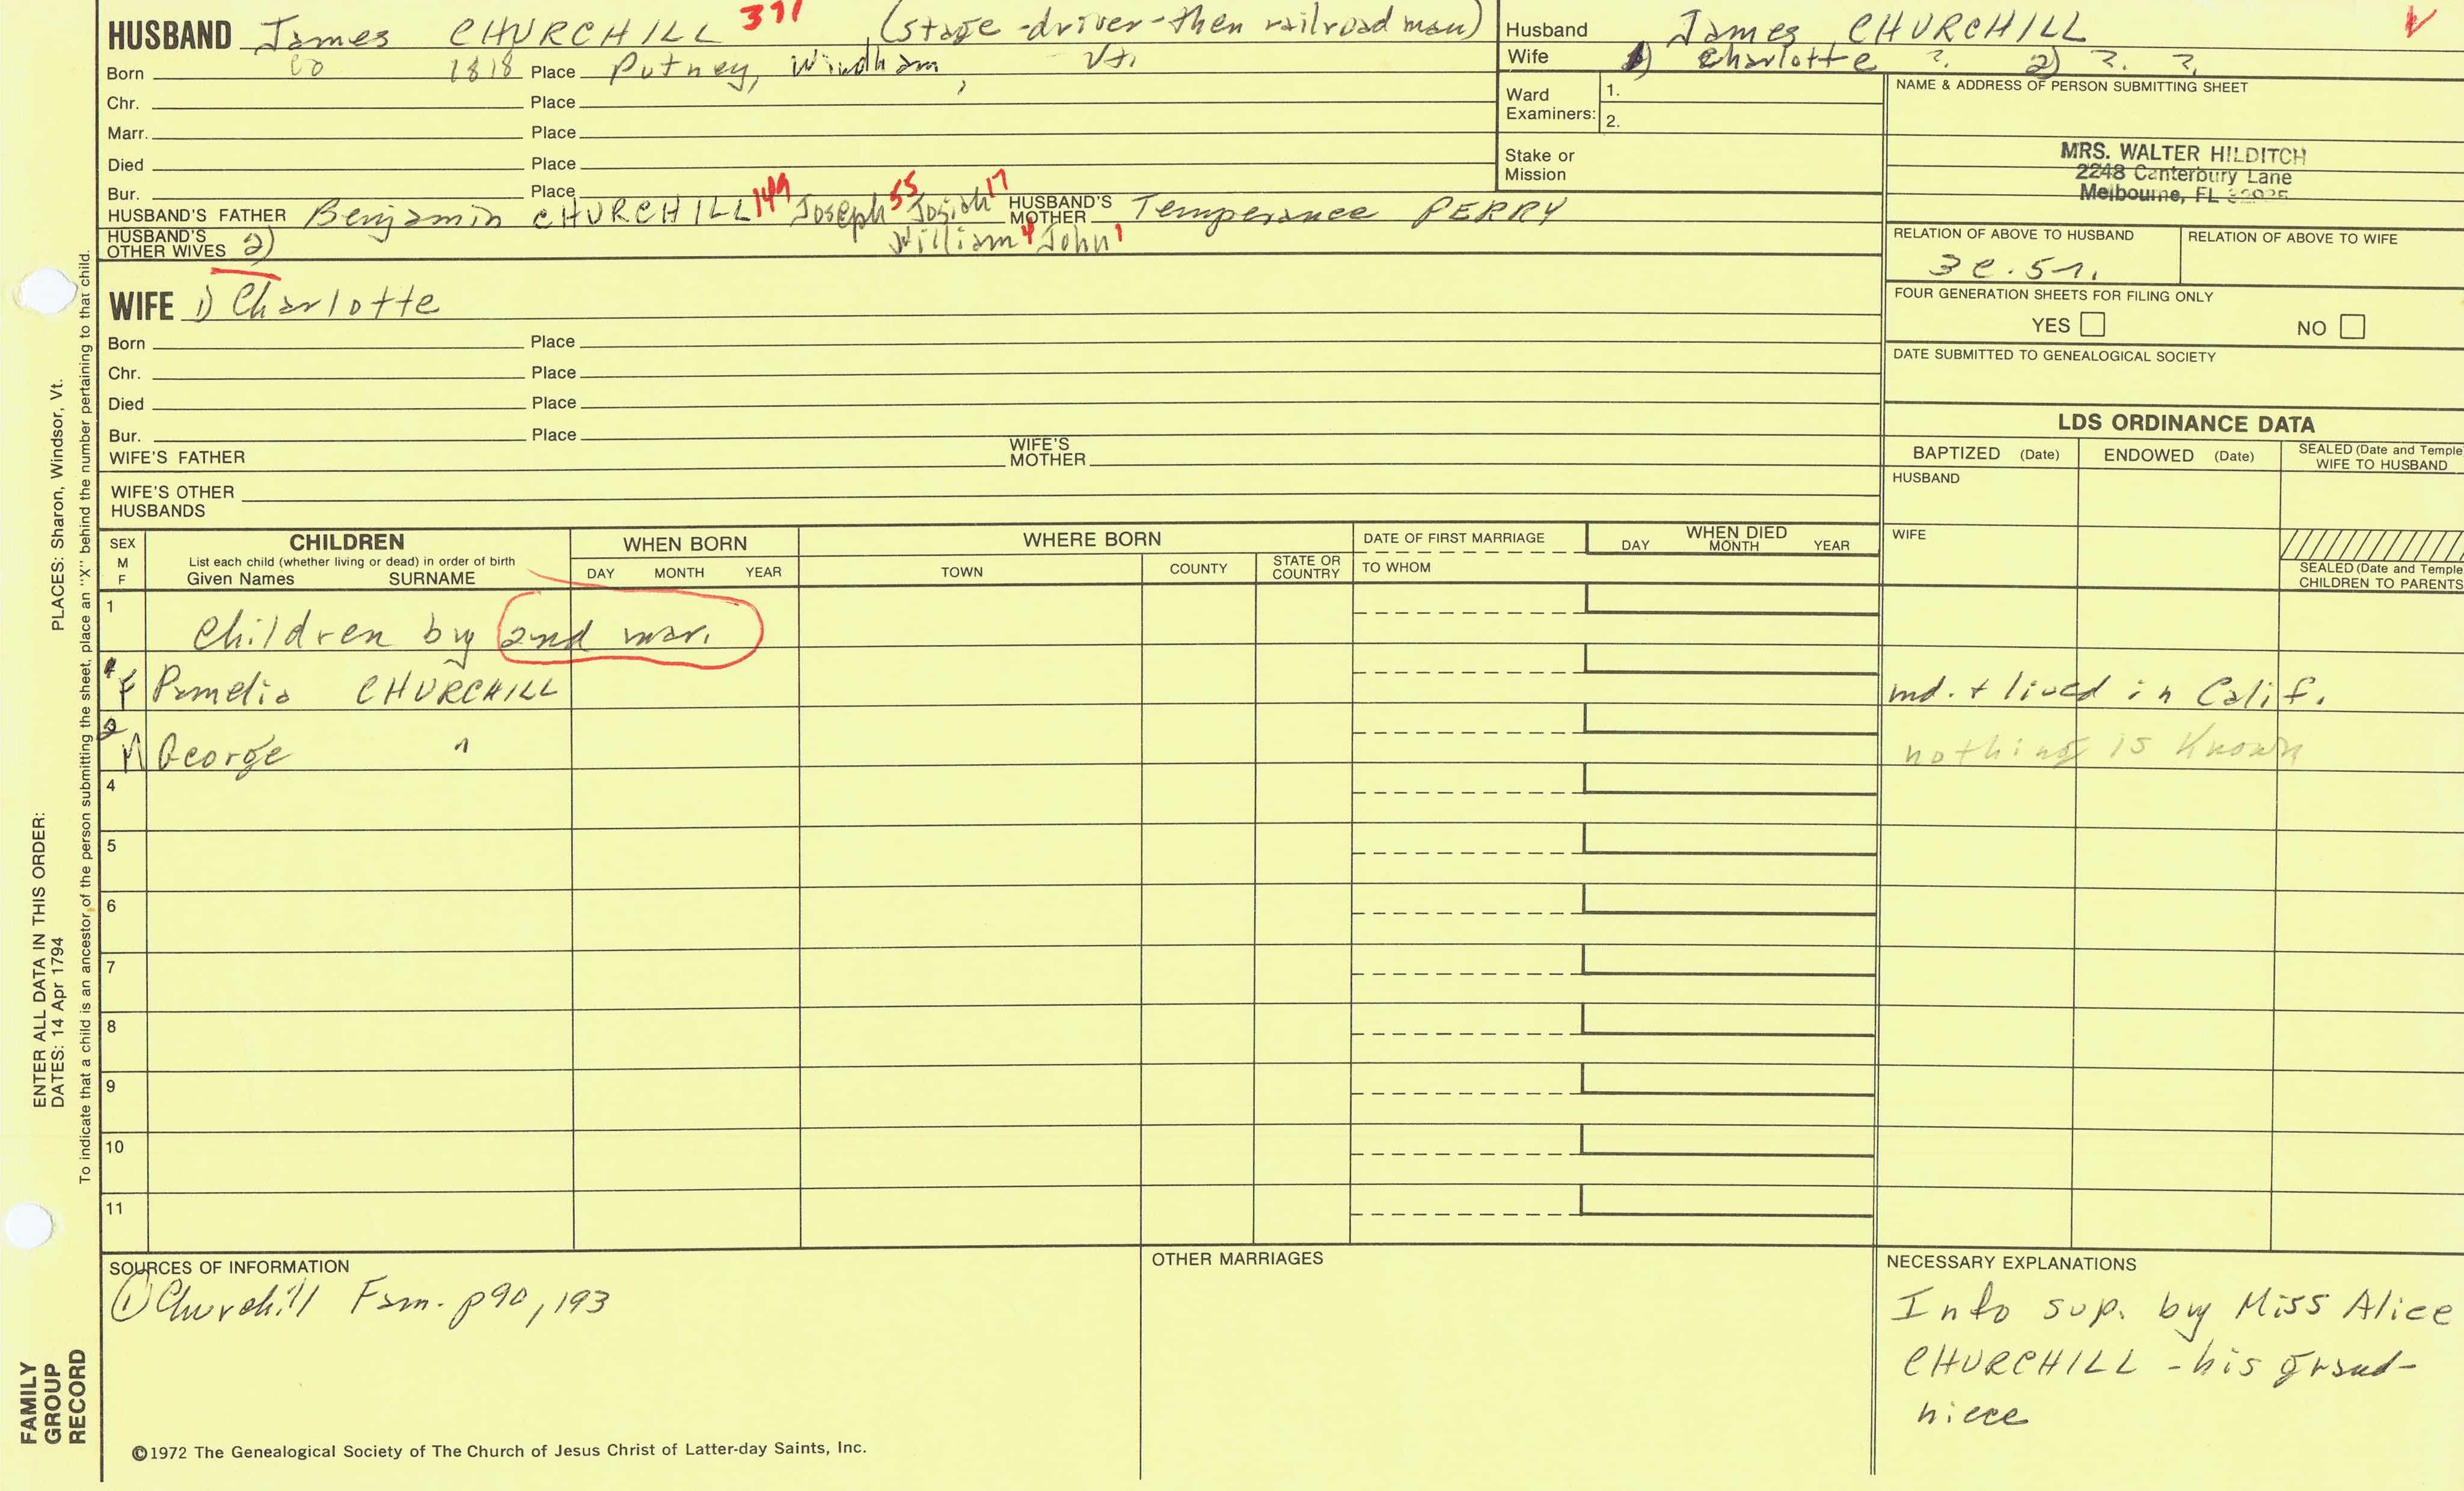 HUSBAND James CHURCHILL 371 (stage-driver-then railroad man)
Born co 1818 Place Putney, Windham, Vt.
Chr. Place
Marr. Place
Died Place
Bur. Place
HUSBAND'S FATHER Benjamin CHURCHILL 149 Joseph 55 Josiah 17 HUSBAND'S MOTHER Temperance PERRY
William 4 John 1
HUSBAND'S OTHER WIVES 2)
WIFE 1) Charlotte
Born Place
Chr. Place
Died Place
Bur. Place
WIFE'S FATHER WIFE'S MOTHER
WIFE'S OTHER HUSBANDS
Husband James CHURCHILL
Wife 1) Charlotte ?. 2) ?. ?.
Ward Examiners: 1.
2.
Stake or Mission
NAME & ADDRESS OF PERSON SUBMITTING SHEET
MRS. WALTER HILDITCH
2248 Canterbury Lane
Melbourne, FL
RELATION OF ABOVE TO HUSBAND RELATION OF ABOVE TO WIFE
3c.5r.
FOUR GENERATION SHEETS FOR FILING ONLY
YES NO
DATE SUBMITTED TO GENEALOGICAL SOCIETY
LDS ORDINANCE DATA
BAPTIZED (Date) ENDOWED (Date) SEALED (Date and Temple WIFE TO HUSBAND
HUSBAND
WIFE
SEALED (Date and Temple CHILDREN TO PARENTS
SEX M F
CHILDREN
List each child (whether living or dead) in order of birth
Given Names SURNAME
WHEN BORN
DAY MONTH YEAR
WHERE BORN
TOWN COUNTY STATE OR COUNTRY
DATE OF FIRST MARRIAGE
TO WHOM
WHEN DIED
DAY MONTH YEAR
1 Children by 2nd mar.
F Pamelia CHURCHILL md. + lived in Calif.
M George " nothing is Known
4
5
6
7
8
9
10
11
SOURCES OF INFORMATION
① Churchill Fam. p90, 193
OTHER MARRIAGES
NECESSARY EXPLANATIONS
Info sup. by Miss Alice
CHURCHILL - his grand-
niece
©1972 The Genealogical Society of The Church of Jesus Christ of Latter-day Saints, Inc.
FAMILY GROUP RECORD
ENTER ALL DATA IN THIS ORDER:
DATES: 14 Apr 1794 PLACES: Sharon, Windsor, Vt.
To indicate that a child is an ancestor of the person submitting the sheet, place an "X" behind the number pertaining to that child.